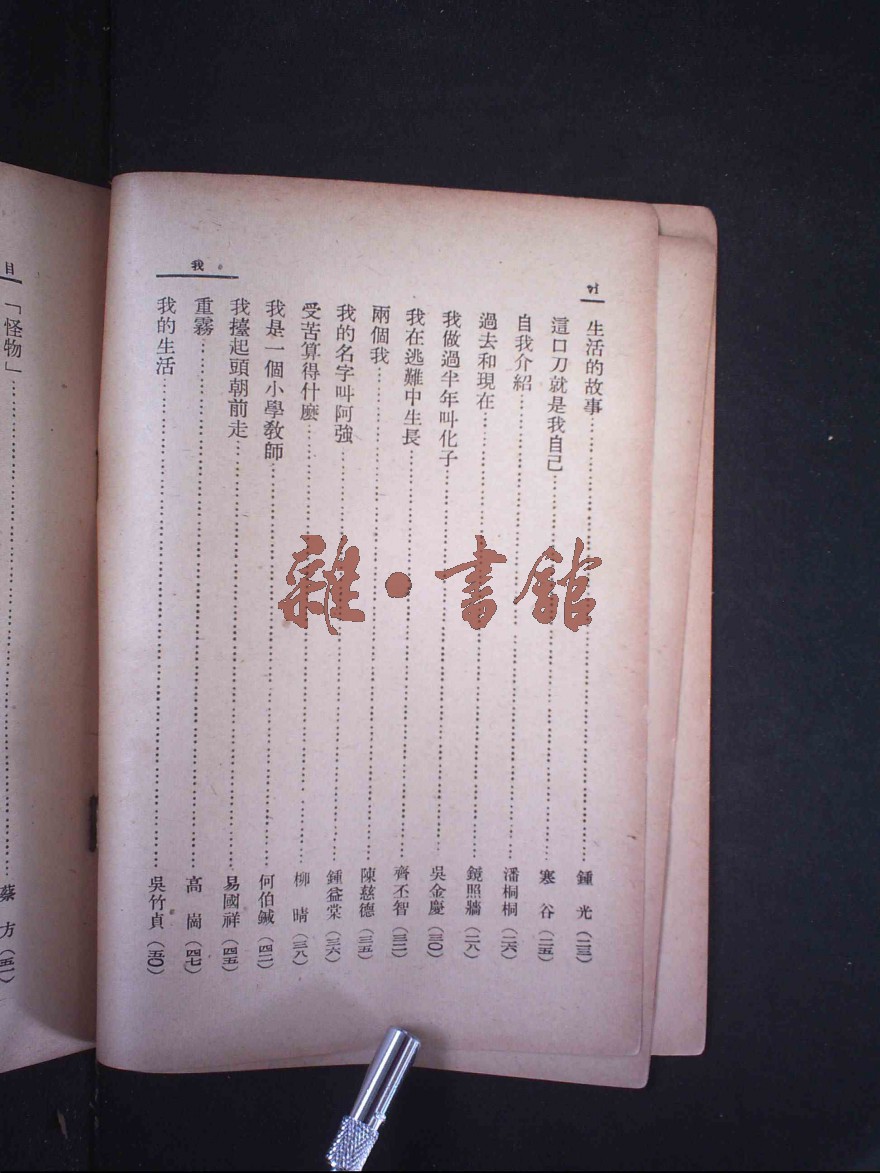 我
生活的故事……鍾　光（二三）
這口刀就是我自己……寒　谷（二五）
自我介紹……潘桐桐（二六）
過去和現在……鏡照牆（二八）
我做過半年叫化子……吳金慶（三〇）
我在逃難中生長……齊丕智（三二）
兩個我……陳慈德（三五）
我的名字叫阿強……鍾益棠（三六）
受苦算得什麼……柳　晴（三八）
我是一個小學教師……何伯鍼（四二）
我擡起頭朝前走……易國祥（四五）
重霧……高　崗（四七）
我的生活……吳竹貞（五〇）
目
「怪物」……蔡　方（五一）
雜·書館